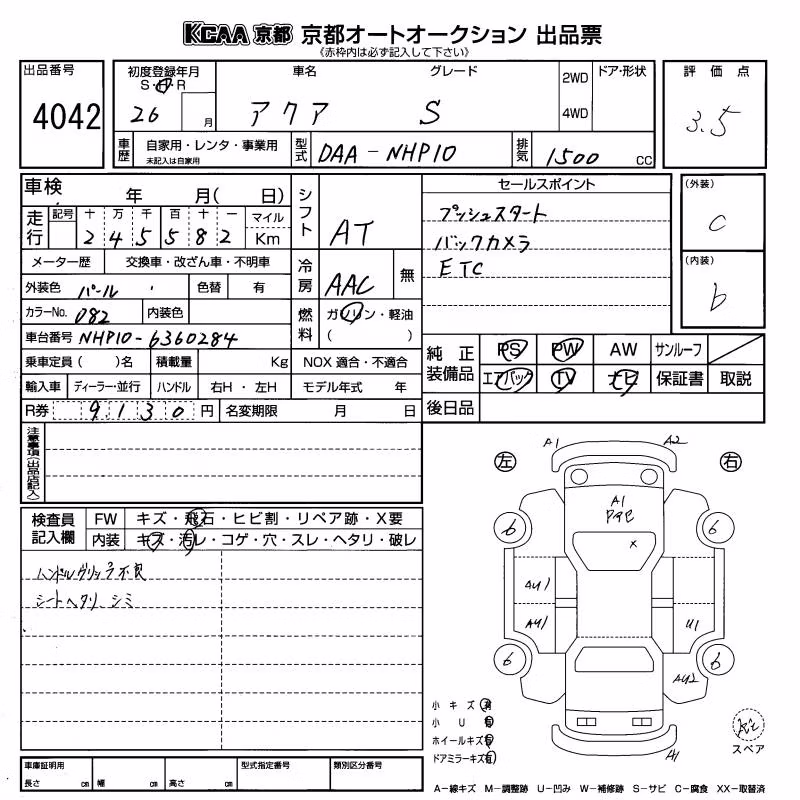 KCAA 京都 京都オートオークション 出品票
《赤枠内は必ず記入して下さい》
出品番号
4042
初度登録年月
S・H・R
26 月
車名
アクア
グレード
S
2WD
4WD
ドア・形状
評価点
3.5
車歴
自家用・レンタ・事業用
未記入は自家用
型式
DAA-NHP10
排気
1500 CC
車検 年 月( 日)
走行
記号 十 万 千 百 十 一 マイル
2 4 5 5 8 2 Km
メーター歴 交換車・改ざん車・不明車
外装色 パール 色替 有
カラーNo. 082 内装色
車台番号 NHP10-6360284
乗車定員( )名 積載量 Kg
輸入車 ディーラー・並行 ハンドル 右H・左H
R券 9130 円 名変期限 月 日
シフト
AT
冷房
AAC 無
燃料
ガソリン・軽油
( )
NOX 適合・不適合
モデル年式 年
セールスポイント
プッシュスタート
バックカメラ
ETC
(外装)
C
(内装)
b
純正装備品
PS PW AW サンルーフ
エアバック TV ナビ 保証書 取説
後日品
注意事項(出品店記入)
検査員記入欄
FW キズ・飛石・ヒビ割・リペア跡・X要
内装 キズ・汚レ・コゲ・穴・スレ・ヘタリ・破レ
ハンドルグリップ不良
シートヘタリ シミ
左 右
A1 A2
A1
6 6
x
AU1
AU1 U1
6 6
AU2
A1
小キズ有
小U有
ホイールキズ有
ドアミラーキズ有
スペア
A-線キズ M-調整跡 U-凹み W-補修跡 S-サビ C-腐食 XX-取替済
車庫証明用
長さ cm 幅 cm 高さ cm
型式指定番号
類別区分番号